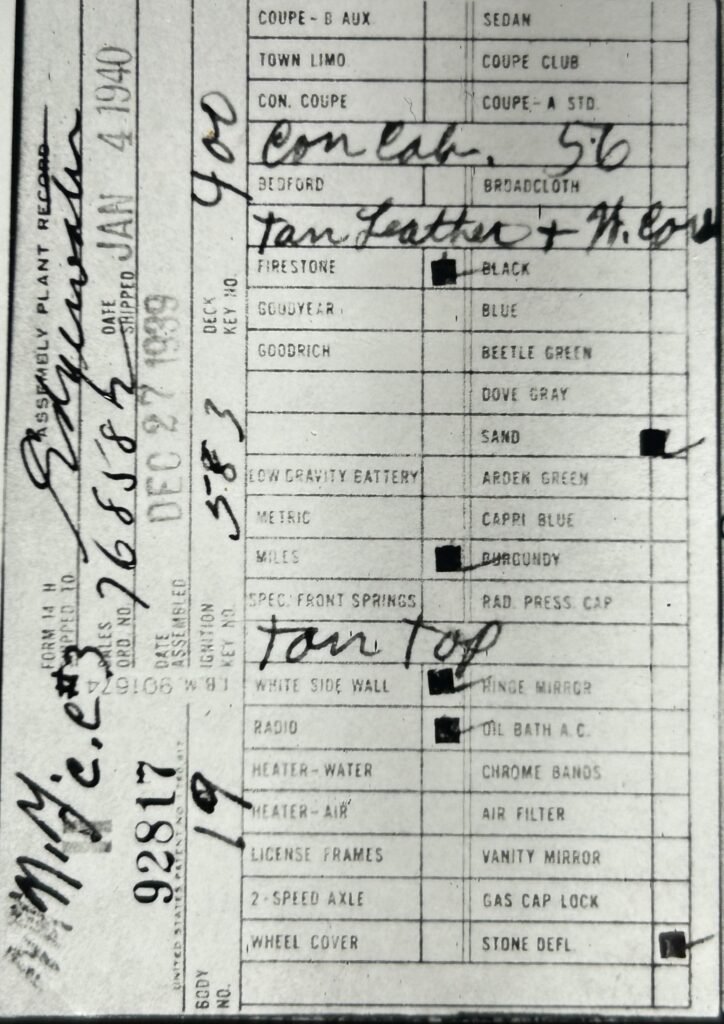 COUPE - B AUX. SEDAN
TOWN LIMO. COUPE CLUB
CON. COUPE COUPE - A STD.
Con Cab. 56
BEDFORD BROADCLOTH
Tan Leather + W. Cord
FIRESTONE BLACK
GOODYEAR BLUE
GOODRICH BEETLE GREEN
DOVE GRAY
SAND
LOW GRAVITY BATTERY ARDEN GREEN
METRIC CAPRI BLUE
MILES BURGUNDY
SPEC. FRONT SPRINGS RAD. PRESS. CAP
Tan Top
WHITE SIDE WALL HINGE MIRROR
RADIO OIL BATH A.C.
HEATER - WATER CHROME BANDS
HEATER - AIR AIR FILTER
LICENSE FRAMES VANITY MIRROR
2 - SPEED AXLE GAS CAP LOCK
WHEEL COVER STONE DEFL.
FORM 14 H ASSEMBLY PLANT RECORD
SHIPPED TO Edgewater
C.C #3
SALES ORD. NO. 768585 DATE SHIPPED JAN 4 1940
DATE ASSEMBLED DEC 27 1939
I.B.M. 901674
92817
UNITED STATES PATENT NO.
BODY NO. 19 IGNITION KEY NO. 583 DECK KEY NO. 400